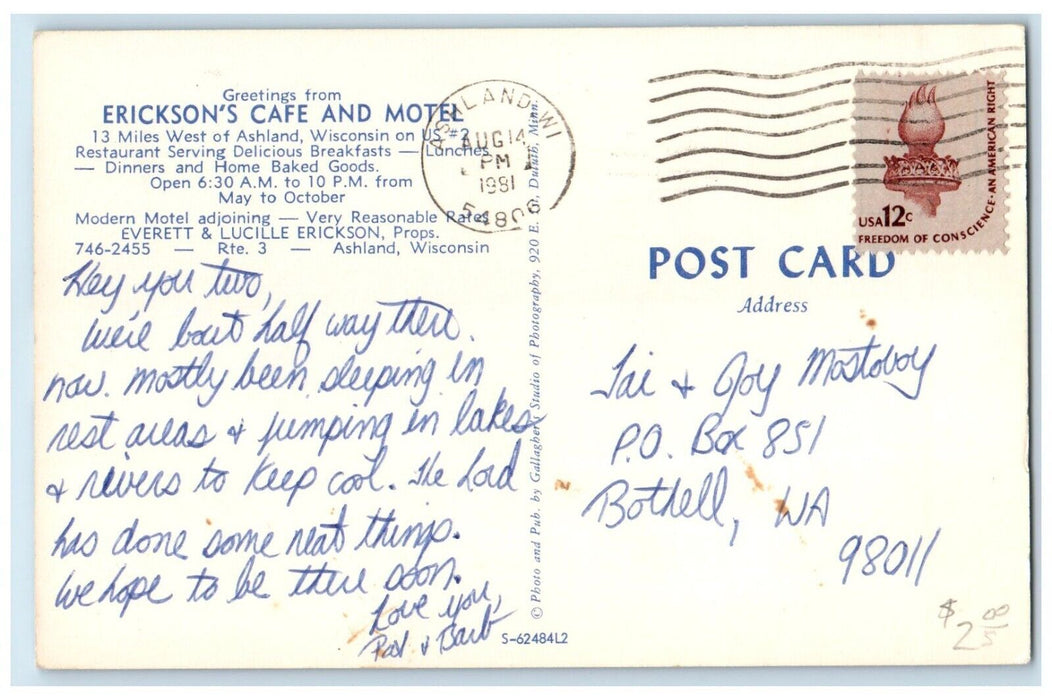 Greetings from
ERICKSON'S CAFE AND MOTEL
13 Miles West of Ashland, Wisconsin on US #2
Restaurant Serving Delicious Breakfasts — Lunches
— Dinners and Home Baked Goods.
Open 6:30 A.M. to 10 P.M. from
May to October
Modern Motel adjoining — Very Reasonable Rates
EVERETT & LUCILLE ERICKSON, Props.
746-2455 — Rte. 3 — Ashland, Wisconsin
Hey you two,
We're bout half way there
now. mostly been sleeping in
rest areas & jumping in lakes
& rivers to keep cool. The Lord
has done some neat things.
We hope to be there soon.
Love you,
& Barb
© Photo and Pub. by Gallagher's Studio of Photography, 920 E. Duluth, Minn.
S-62484L2
ASHLAND, WI
AUG 14
PM
1981
54806
USA 12c
FREEDOM OF CONSCIENCE · AN AMERICAN RIGHT
POST CARD
Address
& Joy Mostovoy
P.O. Box 851
Bothell, WA
98011
$2.00